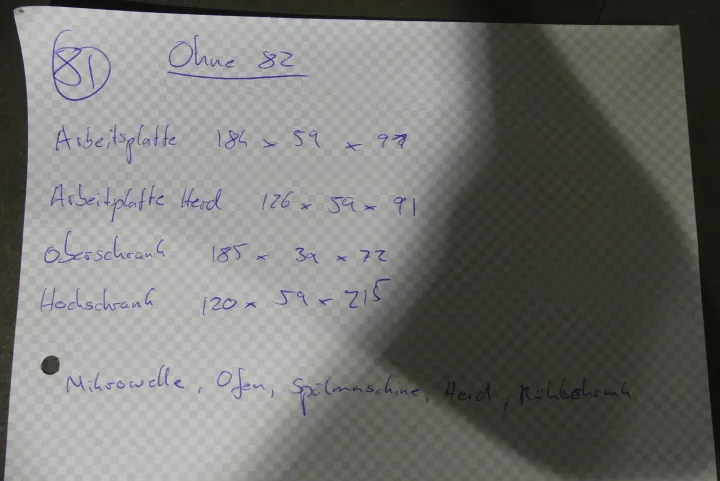 81 Ohne 82
Arbeitsplatte 184 x 59 x 91
Arbeitplatte Herd 126 x 59 x 91
Oberschrank 185 x 39 x 72
Hochschrank 120 x 59 x 215
Mikrowelle, Ofen, Spülmaschine, Herd, Kühlschrank